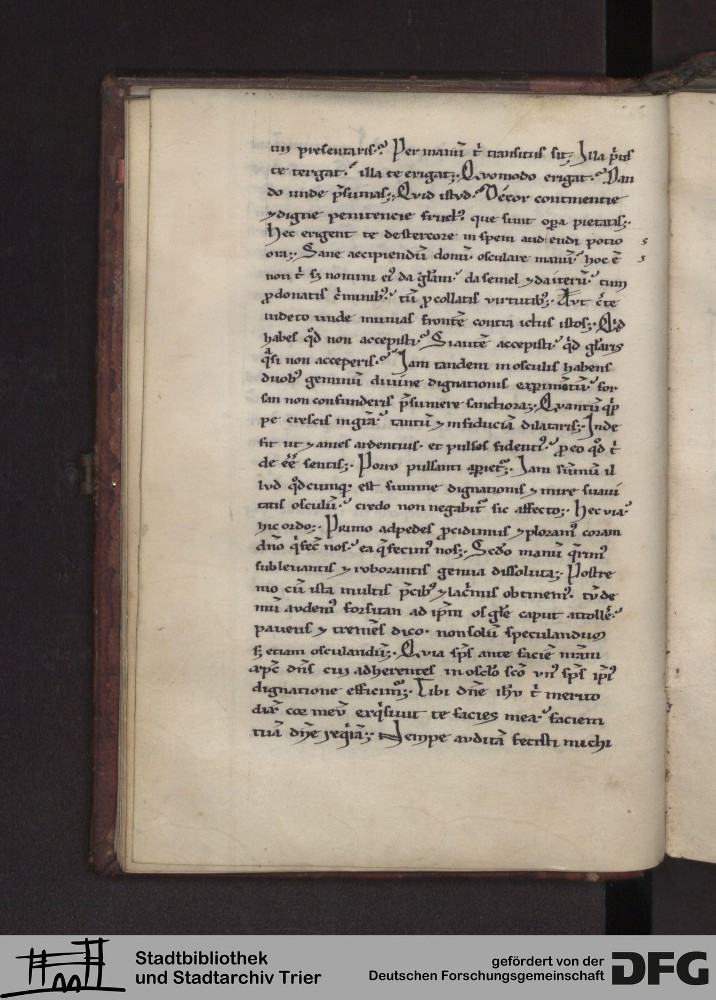 tṁ presentaris? Per manū t̄ transitus sit; Illa p̄us
te tergat. illa te erigat; Quomodo erigat? Dan
do unde p̄sumas; Quid istud? Decor continentie
⁊ digne penitencie fruct⁹ que sunt opa pietatis;
Hec erigent te de stercore in spem audendi potio
ora; Sane accipiendū donū. osculare manū. hoc ē
non t̄ sꝫ nomini ei⁹ da gl̄am. da semel ⁊ da iterū. tum
ꝓ donatis c̄minib⁹. tū ꝓ collatis virtutib⁹; Aut c̄te
uideto unde munias frontē contra ictus istos; Qid
habes qd̄ non accepisti? Si autē accepisti. qd̄ gl̄aris
q̄si non acceperis? Iam tandem in osculis habens
duob⁹ geminū diuine dignationis experimētū. for
san non confunderis p̄sumere sanctiora; Quantū q̄p
pe crescis in grā. tantū ⁊ in fiduciā dilataris; Inde
fit ut ⁊ ames ardentius. et pulses fidenti⁹. ꝓ eo qd̄ t̄
de eē sentis; Porro pulsanti apietꝰ; Iam sūmū il
lud qdcunq; est summe dignationis ⁊ mire suaui
tatis osculū. credo non negabit̄ sic affecto; Hec uia.
hic ordo; Primo ad pedes ꝓcidimus ⁊ ploram⁹ coram
dn̄o q̄ fec̄ nos. ea q̄ fecim⁹ nos; Scd̄o manū q̄rim⁹
subleuantis ⁊ roborantis genua dissoluta; Postre
mo cū ista multis p̄cib⁹ ⁊ lac̄mis obtinem⁹. tū de
mū audem⁹ forsitan ad ip̄m os gl̄e caput attolle̅.
pauens ⁊ tremēs dico. non solū speculandum
sꝫ etiam osculandū; Quia sp̄s ante faciē nr̄am
xp̄c dn̄s cui adherentes in osc̄lo sc̄o vn⁹ sp̄s ip̄i⁹
dignatione efficim̅; Tibi dn̄e ih̄u t̄ merito
dix̄ cor meū exq̄siuit te facies mea. faciem
tuā dn̄e reqrā; Nempe auditā fecisti michi
Stadtbibliothek
und Stadtarchiv Trier
gefördert von der
Deutschen Forschungsgemeinschaft
DFG